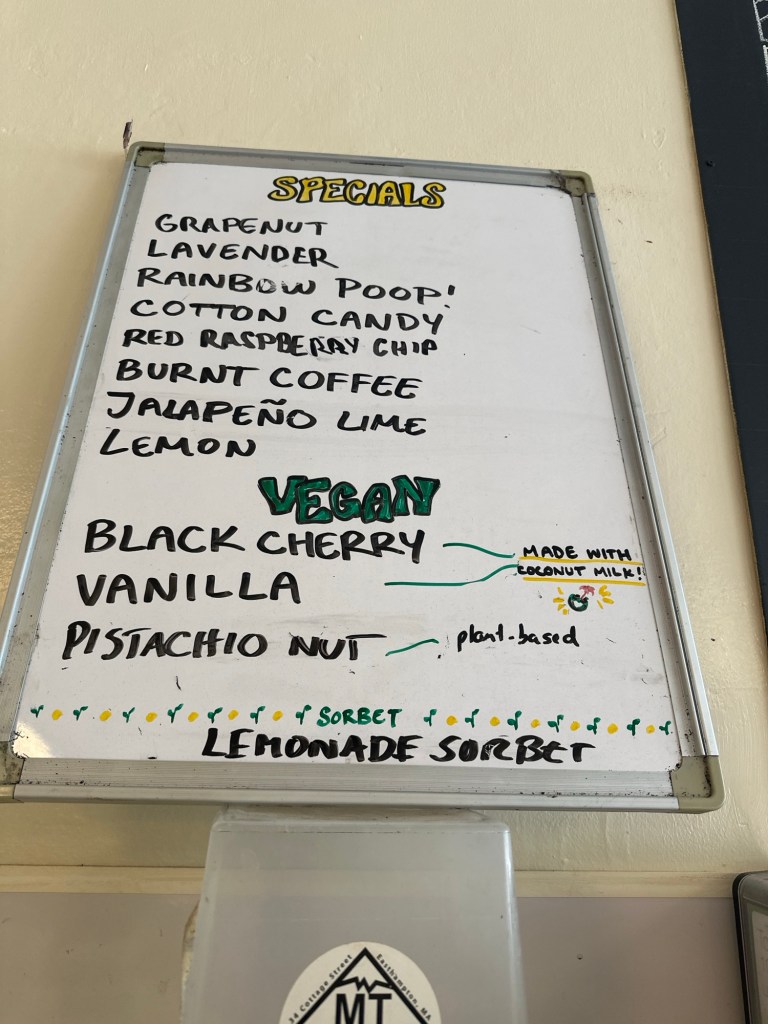 SPECIALS
GRAPENUT
LAVENDER
RAINBOW POOP!
COTTON CANDY
RED RASPBERRY CHIP
BURNT COFFEE
JALAPEÑO LIME
LEMON
VEGAN
BLACK CHERRY
VANILLA
MADE WITH
COCONUT MILK!
PISTACHIO NUT
plant-based
SORBET
LEMONADE SORBET
34 Cottage Street
Easthampton, MA
MT